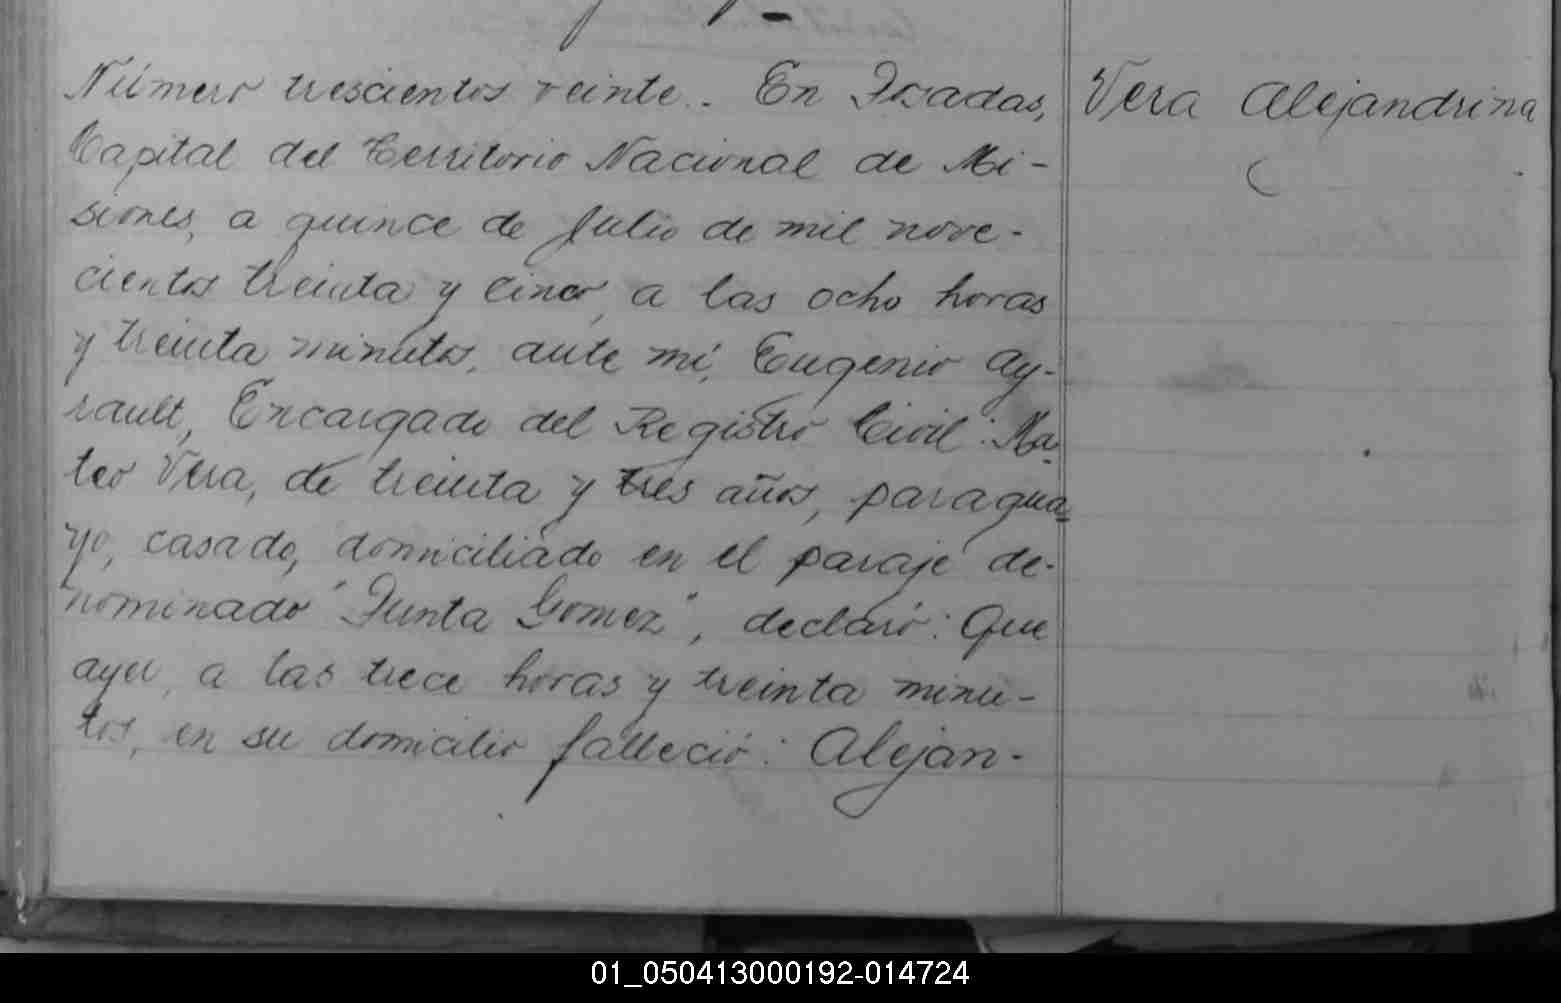 Número trescientos veinte.. En Posadas,
Capital del Territorio Nacional de Mi-
siones, a quince de Julio de mil nove-
cientos treinta y cinco, a las ocho horas
y treinta minutos, ante mí, Eugenio Ay-
rault, Encargado del Registro Civil: Ma-
teo Vera, de treinta y tres años, paragua-
yo, casado, domiciliado en el paraje de-
nominado "Punta Gomez", declaró: Que
ayer, a las trece horas y treinta minu-
tos, en su domicilio falleció: Alejan-
Vera Alejandrina
01_050413000192-014724